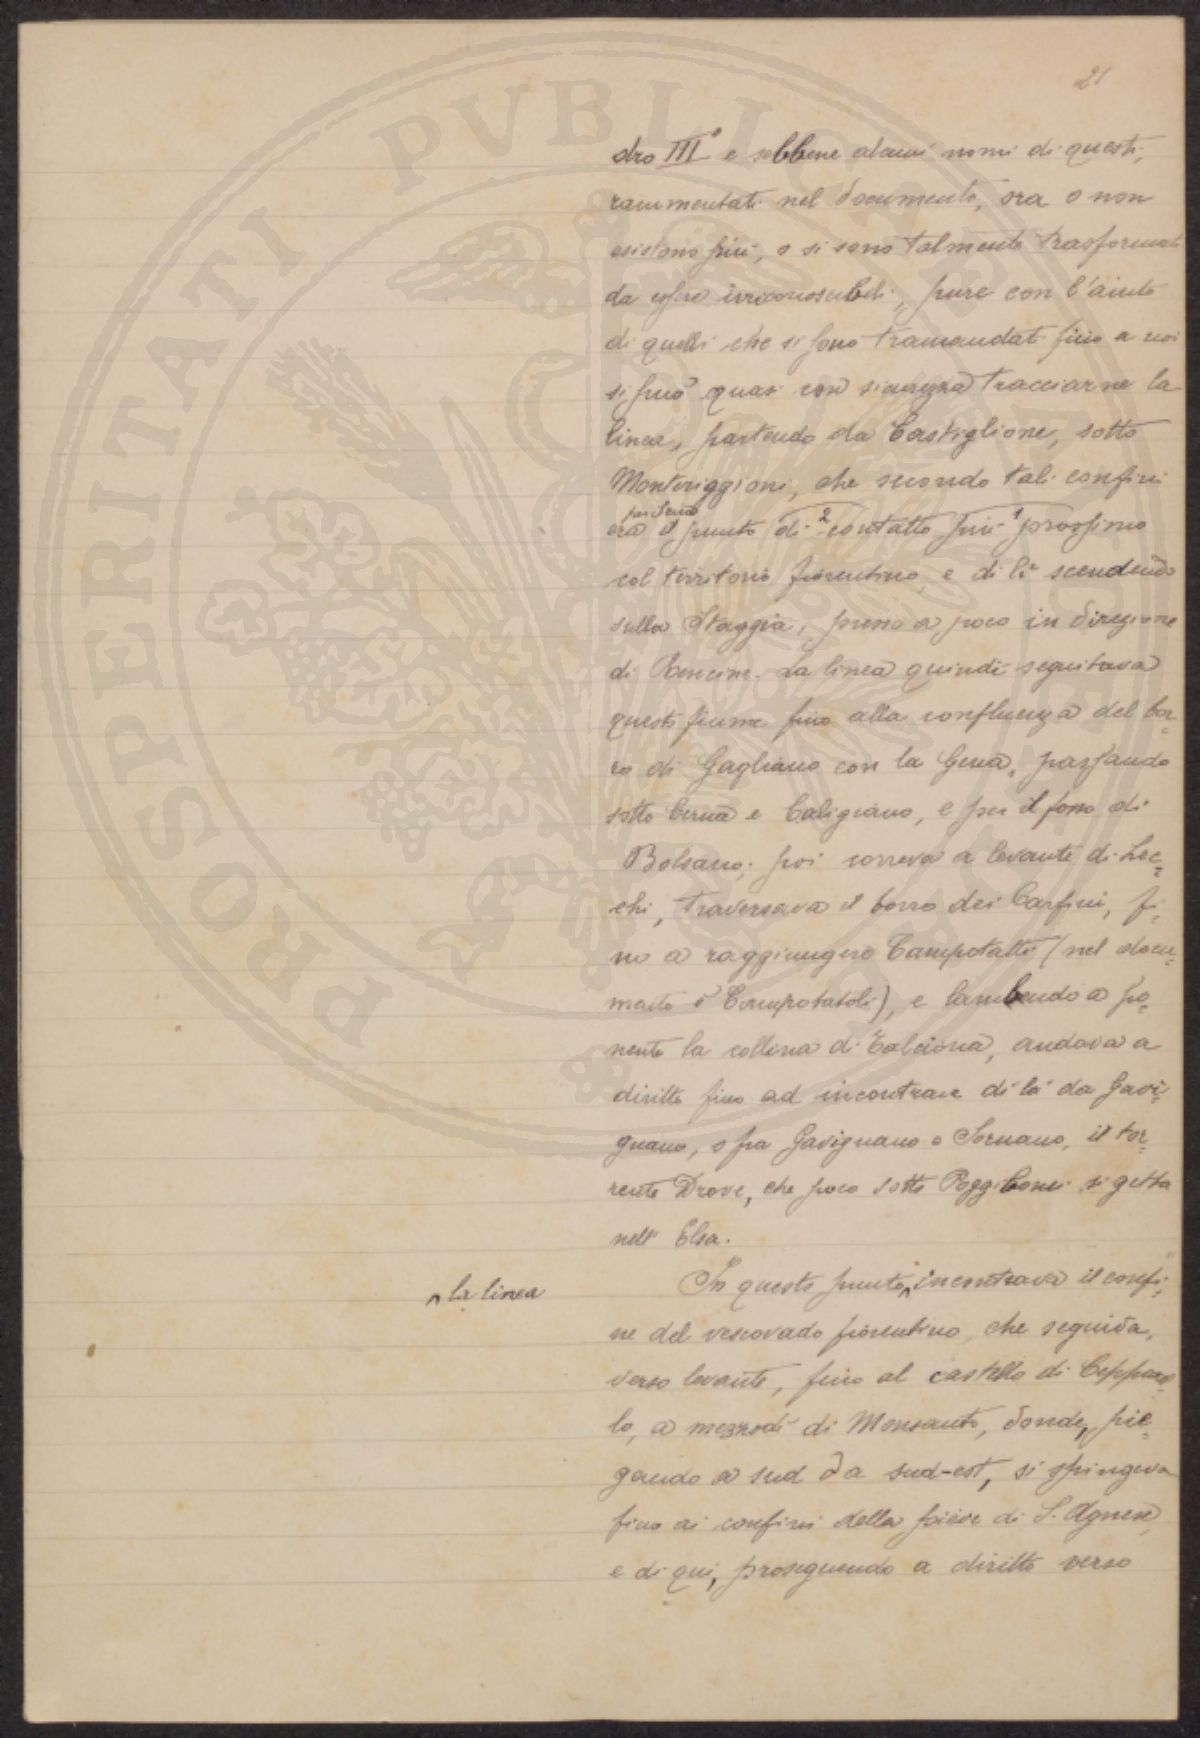 21
dro III° e sebbene alcuni nomi di questi,
rammentati nel documento, ora o non
esistono più, o si sono talmente trasformati
da esser irriconoscibili, pure con l'aiuto
di quelli che si sono tramandati fino a noi
si può quasi con sicurezza tracciarne la
linea, partendo da Castiglione, sotto
Monteriggioni, che secondo tali confini
per Siena
era il punto di 2 contatto più 1 prossimo
col territorio fiorentino, e di lì scendendo
sulla Staggia, presso a poco in direzione
di Rencine. La linea quindi seguitava
questo fiume fino alla confluenza del bor-
ro di Gagliano con la Gena, passando
sotto Cerna e Caligiano, e per il fosso di
Bolsano; poi correva a levante di Lec-
chi, traversava il borro dei Carfini, fi-
no a raggiungere Campotatti (nel docu-
mento è Compotatoli), e lambendo a po-
nente la collina di Talciona, andava a
diritto fino ad incontrare di là da Gavi-
gnano, o fra Gavignano e Sornano, il tor-
rente Drove, che poco sotto Poggibonsi si getta
nell'Elsa.
In questo punto ^ incontrava il confi-
^ la linea
ne del vescovado fiorentino, che seguiva,
verso levante, fino al castello di Ceppare-
lo, a mezzodì di Monsanto, donde, pie-
gando a sud da sud-est, si spingeva
fino ai confini della pieve di S. Agnese
e di qui, proseguendo a diritto verso
PROSPERITATI PVBLICAE